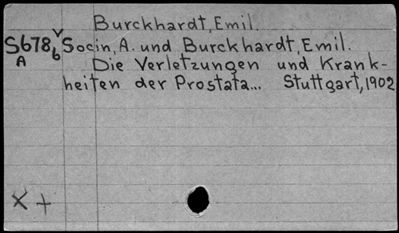 Burckhardt, Emil.
S678v6 Socin, A. und Burckhardt, Emil.
A Die Verletzungen und Krank-
heiten der Prostata... Stuttgart, 1902
X +